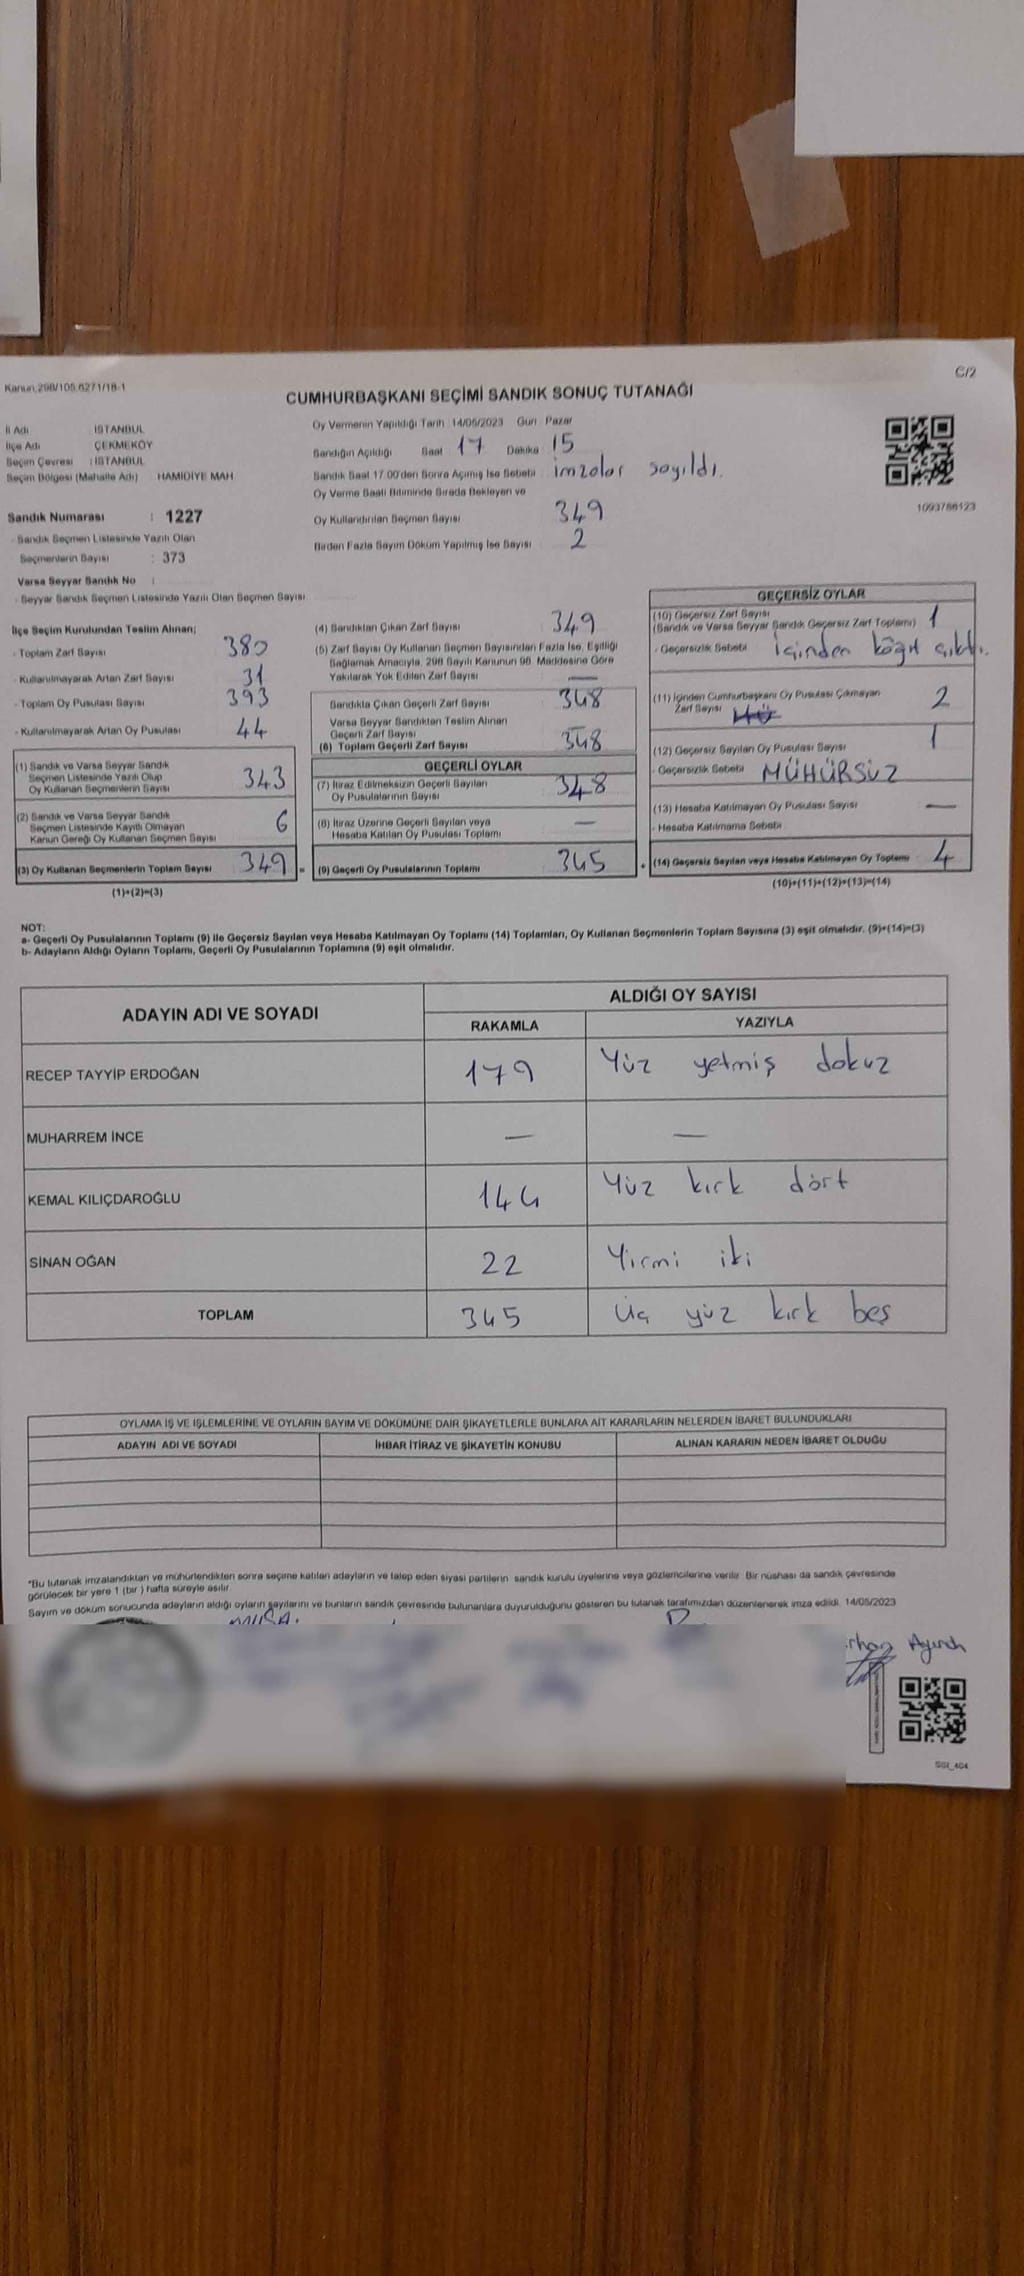 Kanun.298/105.6271/18-1
C/2
CUMHURBAŞKANI SEÇİMİ SANDIK SONUÇ TUTANAĞI
İl Adı İSTANBUL
İlçe Adı ÇEKMEKÖY
Seçim Çevresi : İSTANBUL
Seçim Bölgesi (Mahalle Adı) HAMİDİYE MAH
Sandık Numarası : 1227
- Sandık Seçmen Listesinde Yazılı Olan
Seçmenlerin Sayısı : 373
Varsa Seyyar Sandık No :
- Seyyar Sandık Seçmen Listesinde Yazılı Olan Seçmen Sayısı
Oy Vermenin Yapıldığı Tarih 14/05/2023 Gün Pazar
Sandığın Açıldığı Saat 17 Dakika 15
Sandık Saat 17.00'den Sonra Açılmış İse Sebebi imzalar sayıldı.
Oy Verme Saati Bitiminde Sırada Bekleyen ve
Oy Kullandırılan Seçmen Sayısı 349
Birden Fazla Sayım Döküm Yapılmış İse Sayısı 2
1093786123
İlçe Seçim Kurulundan Teslim Alınan;
- Toplam Zarf Sayısı 380
- Kullanılmayarak Artan Zarf Sayısı 31
- Toplam Oy Pusulası Sayısı 393
- Kullanılmayarak Artan Oy Pusulası 44
(1) Sandık ve Varsa Seyyar Sandık
Seçmen Listesinde Yazılı Olup
Oy Kullanan Seçmenlerin Sayısı 343
(2) Sandık ve Varsa Seyyar Sandık
Seçmen Listesinde Kayıtlı Olmayan
Kanun Gereği Oy Kullanan Seçmen Sayısı 6
(3) Oy Kullanan Seçmenlerin Toplam Sayısı 349 =
(1)+(2)=(3)
(4) Sandıktan Çıkan Zarf Sayısı 349
(5) Zarf Sayısı Oy Kullanan Seçmen Sayısından Fazla İse, Eşitliği
Sağlamak Amacıyla, 298 Sayılı Kanunun 98. Maddesine Göre
Yakılarak Yok Edilen Zarf Sayısı —
Sandıkta Çıkan Geçerli Zarf Sayısı 348
Varsa Seyyar Sandıktan Teslim Alınan
Geçerli Zarf Sayısı
(6) Toplam Geçerli Zarf Sayısı 348
GEÇERLİ OYLAR
(7) İtiraz Edilmeksizin Geçerli Sayılan
Oy Pusulalarının Sayısı 348
(8) İtiraz Üzerine Geçerli Sayılan veya
Hesaba Katılan Oy Pusulası Toplamı —
(9) Geçerli Oy Pusulalarının Toplamı 345 +
GEÇERSİZ OYLAR
(10) Geçersiz Zarf Sayısı 1
(Sandık ve Varsa Seyyar Sandık Geçersiz Zarf Toplamı)
- Geçersizlik Sebebi İçinden kâğıt çıktı.
(11) İçinden Cumhurbaşkanı Oy Pusulası Çıkmayan
Zarf Sayısı 2
(12) Geçersiz Sayılan Oy Pusulası Sayısı 1
- Geçersizlik Sebebi MÜHÜRSÜZ
(13) Hesaba Katılmayan Oy Pusulası Sayısı —
- Hesaba Katılmama Sebebi
(14) Geçersiz Sayılan veya Hesaba Katılmayan Oy Toplamı 4
(10)+(11)+(12)+(13)=(14)
NOT:
a- Geçerli Oy Pusulalarının Toplamı (9) ile Geçersiz Sayılan veya Hesaba Katılmayan Oy Toplamı (14) Toplamları, Oy Kullanan Seçmenlerin Toplam Sayısına (3) eşit olmalıdır. (9)+(14)=(3)
b- Adayların Aldığı Oyların Toplamı, Geçerli Oy Pusulalarının Toplamına (9) eşit olmalıdır.
ADAYIN ADI VE SOYADI ALDIĞI OY SAYISI
RAKAMLA YAZIYLA
RECEP TAYYİP ERDOĞAN 179 Yüz yetmiş dokuz
MUHARREM İNCE — —
KEMAL KILIÇDAROĞLU 144 Yüz kırk dört
SİNAN OĞAN 22 Yirmi iki
TOPLAM 345 Üç yüz kırk beş
OYLAMA İŞ VE İŞLEMLERİNE VE OYLARIN SAYIM VE DÖKÜMÜNE DAİR ŞİKAYETLERLE BUNLARA AİT KARARLARIN NELERDEN İBARET BULUNDUKLARI
ADAYIN ADI VE SOYADI İHBAR İTİRAZ VE ŞİKAYETİN KONUSU ALINAN KARARIN NEDEN İBARET OLDUĞU
"Bu tutanak imzalandıktan ve mühürlendikten sonra seçime katılan adayların ve talep eden siyasi partilerin sandık kurulu üyelerine veya gözlemcilerine verilir. Bir nüshası da sandık çevresinde
görülecek bir yere 1 (bir) hafta süreyle asılır.
Sayım ve döküm sonucunda adayların aldığı oyların sayılarını ve bunların sandık çevresinde bulunanlara duyurulduğunu gösteren bu tutanak tarafımızdan düzenlenerek imza edildi. 14/05/2023
SGI_404